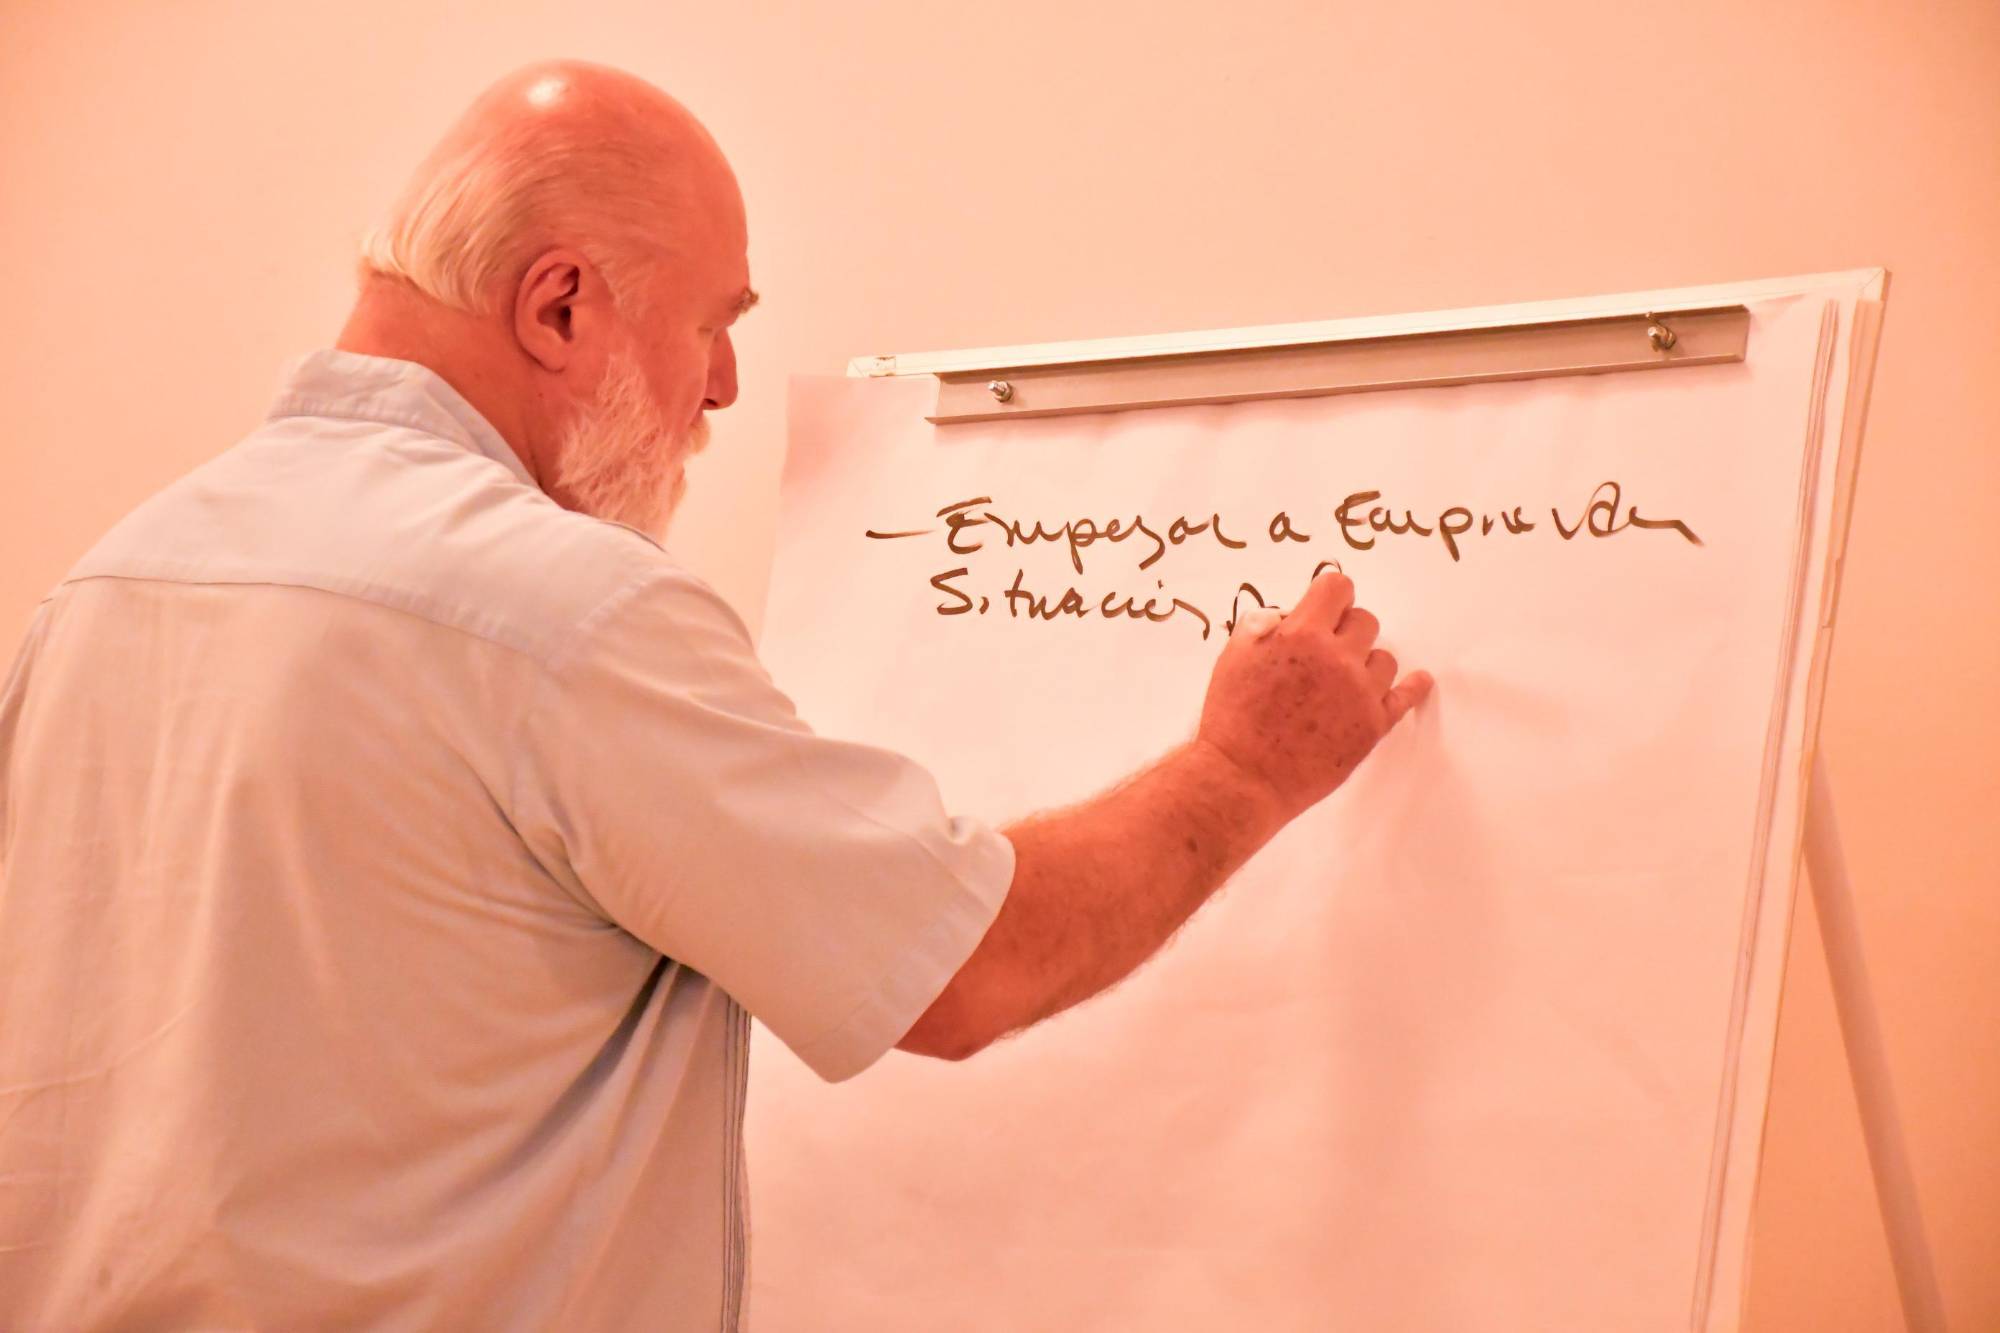 - Empezar a Emprender
Situación